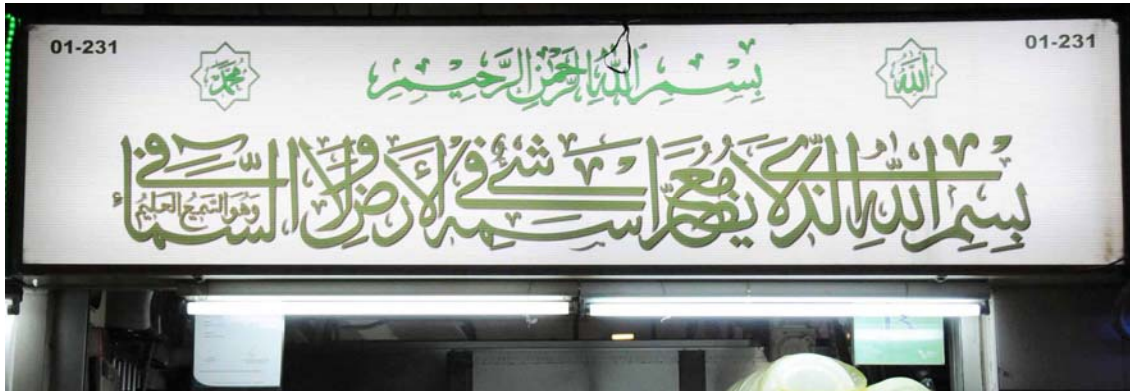 01-231
01-231
الله
بسم الله الرحمن الرحيم
محمد
بسم الله الذي لا يضر مع اسمه شيء في الأرض ولا في السماء
وهو السميع العليم